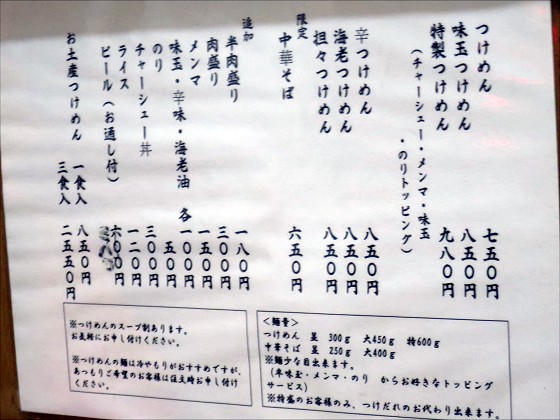 つけめん 七五〇円
味玉つけめん 八五〇円
特製つけめん 九八〇円
(チャーシュー・メンマ・味玉
・のりトッピング)
辛つけめん 八五〇円
海老つけめん 八五〇円
担々つけめん 八五〇円
限定
中華そば 六五〇円
追加
半肉盛り 一八〇円
肉盛り 三〇〇円
メンマ 一五〇円
味玉・辛味・海老油 各一〇〇円
のり 五〇円
チャーシュー丼 三〇〇円
ライス 一二〇円
ビール(お通し付) 六〇〇円
お土産つけめん 一食入 八五〇円
三食入 二五五〇円
<麺量>
つけめん 並 300g 大450g 特600g
中華そば 並 250g 大400g
※麺少な目出来ます。
(半味玉・メンマ・のり からお好きなトッピング
サービス)
※特盛のお客様のみ、つけだれのお代わり出来ます。
※つけめんのスープ割あります。
お気軽にお申し付けください。
※つけめんの麺は冷やもりがおすすめですが、
あつもりご希望のお客様は注文時お申し付け
ください。